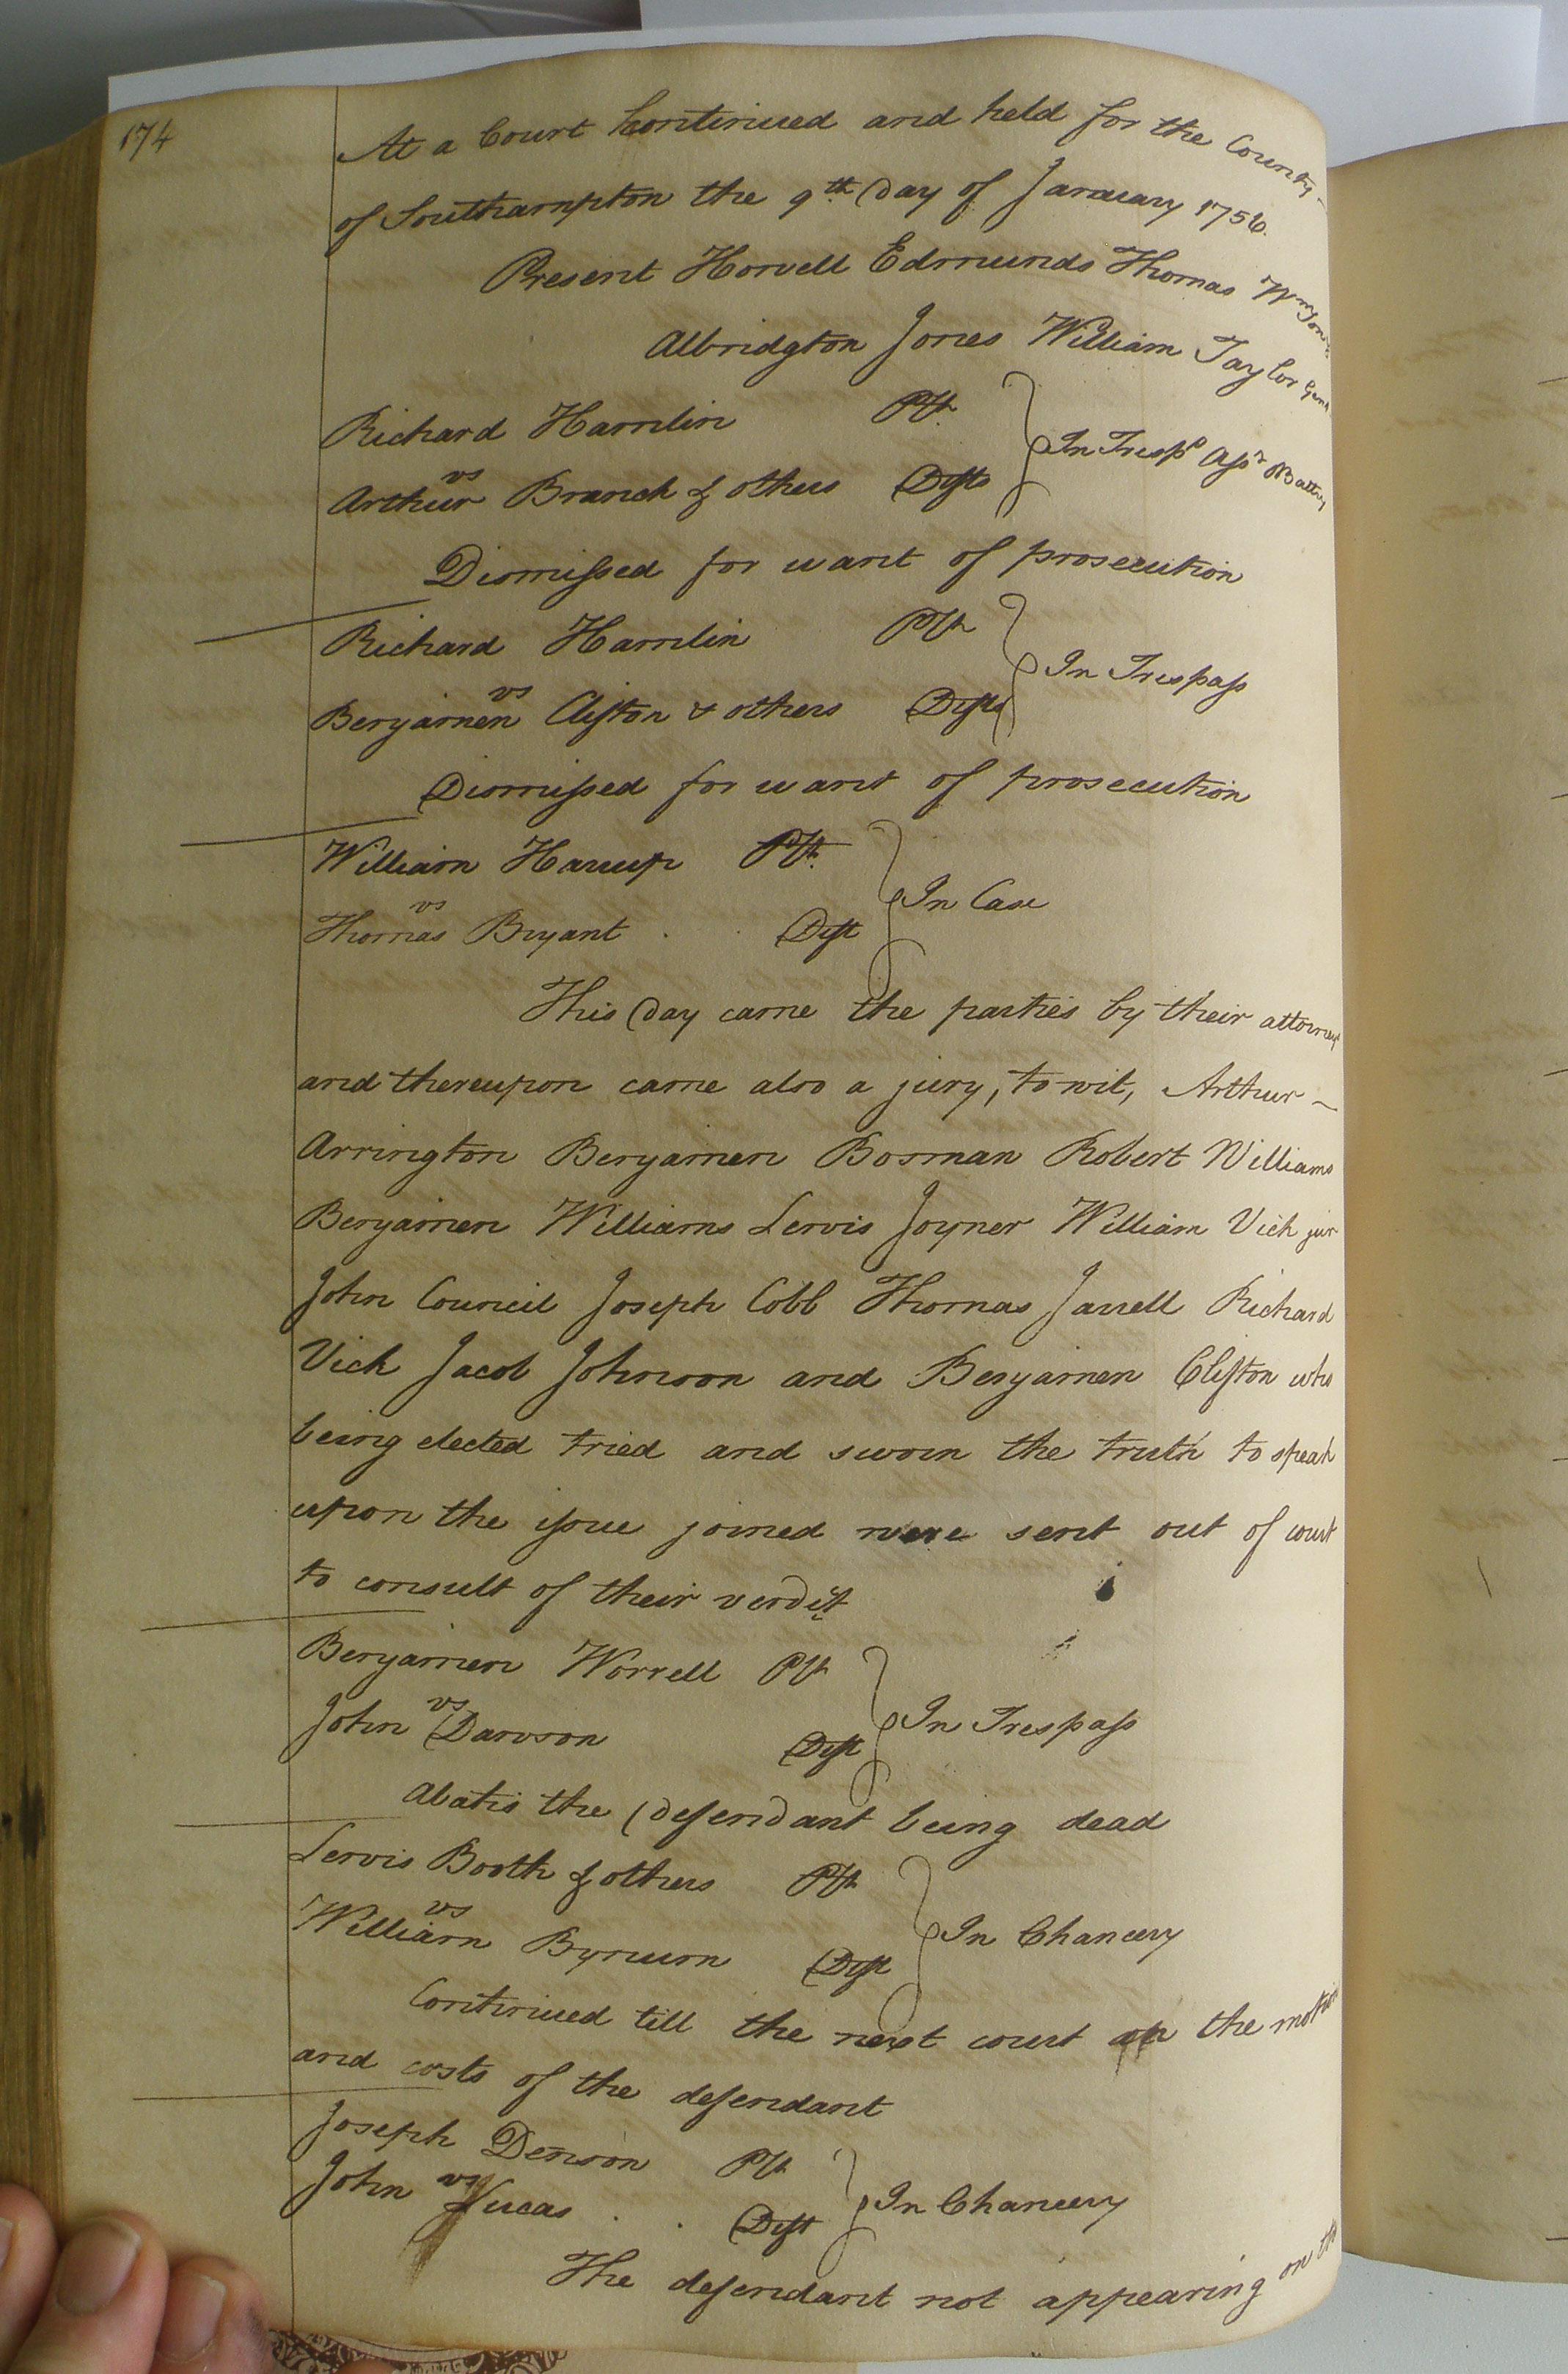 174
At a Court Continued and held for the County
of Southampton the 9th Day of January 1756.
Present Howell Edmunds Thomas Wmson
Albridgton Jones William Taylor Gent
Richard Hamlin Plt
vs
Arthur Branch & others Defts
In Tresps Asst Battry
Dismissed for want of prosecution
Richard Hamlin Plt
vs
Benjamen Clifton & others Defts
In Trespass
Dismissed for want of prosecution
William Harrup Plt
vs
Thomas Bryant Deft
In Case
This Day came the parties by their attorneys
and thereupon came also a jury, to wit, Arthur
Arrington Benjamen Bosman Robert Williams
Benjamen Williams Lewis Joyner William Vick jur
John Council Joseph Cobb Thomas Jarrell Richard
Vick Jacob Johnson and Benjamen Clifton who
being elected tried and sworn the truth to speak
upon the issue joined were sent out of court
to consult of their verdit
Benjamen Worrell Plt
vs
John Dawson Deft
In Trespass
Abatis the Defendant being dead
Lewis Booth & others Plt
vs
William Bynum Deft
In Chancery
Continued till the next court on the motion
and costs of the defendant
Joseph Denson Plt
vs
John Lucas Deft
In Chancery
The defendant not appearing on the